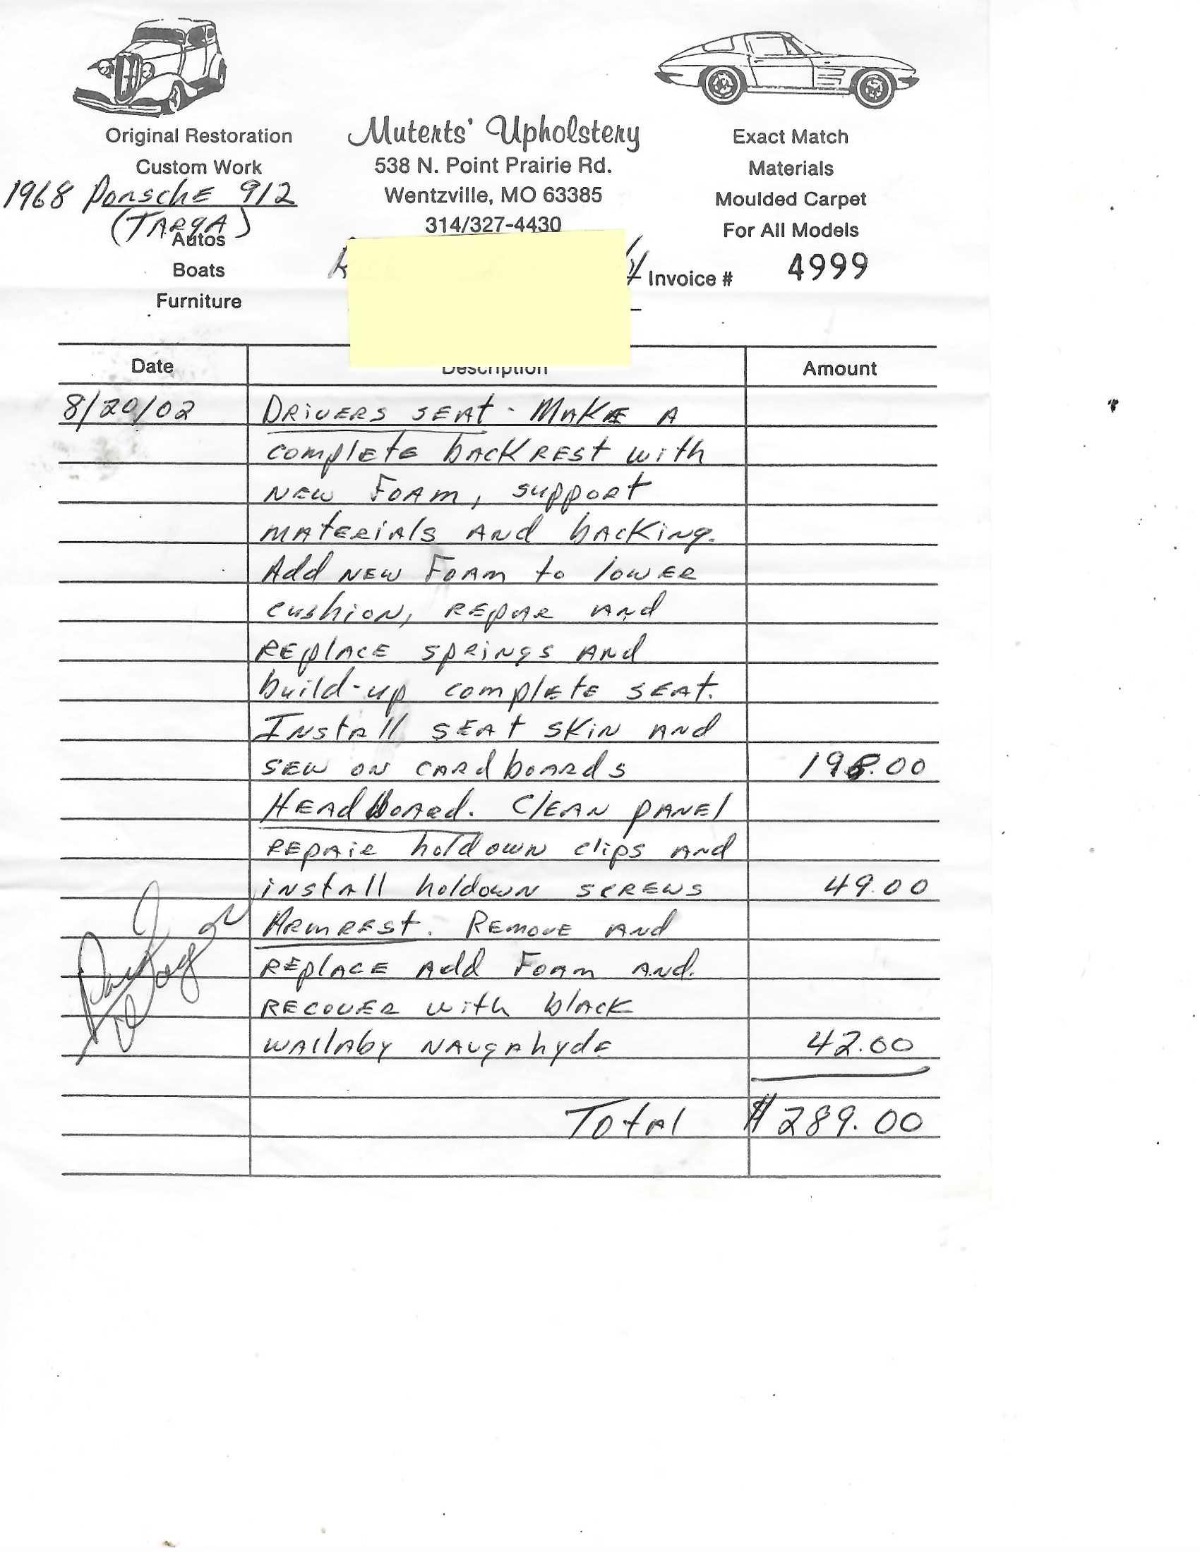 Original Restoration
Custom Work
1968 Porsche 912
(TARGA)
Autos
Boats
Furniture
Muterts' Upholstery
538 N. Point Prairie Rd.
Wentzville, MO 63385
314/327-4430
Exact Match
Materials
Moulded Carpet
For All Models
Invoice # 4999
Date Description Amount
8/20/02 Drivers seat - Make a
complete backrest with
new foam, support
materials and backing.
Add new foam to lower
cushion, repair and
replace springs and
build-up complete seat.
Install seat skin and
sew on cardboards 198.00
Headboard. Clean panel
repair holdown clips and
install holdown screws 49.00
Armrest. Remove and
replace add foam and
recover with black
wallaby naugahyde 42.00
Total $289.00